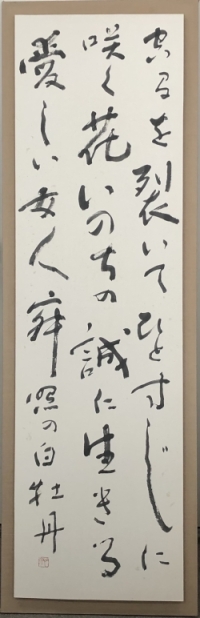 空を裂いてひとすじに
咲く花いのちの誠に生きる
愛しい女人寂照の白牡丹